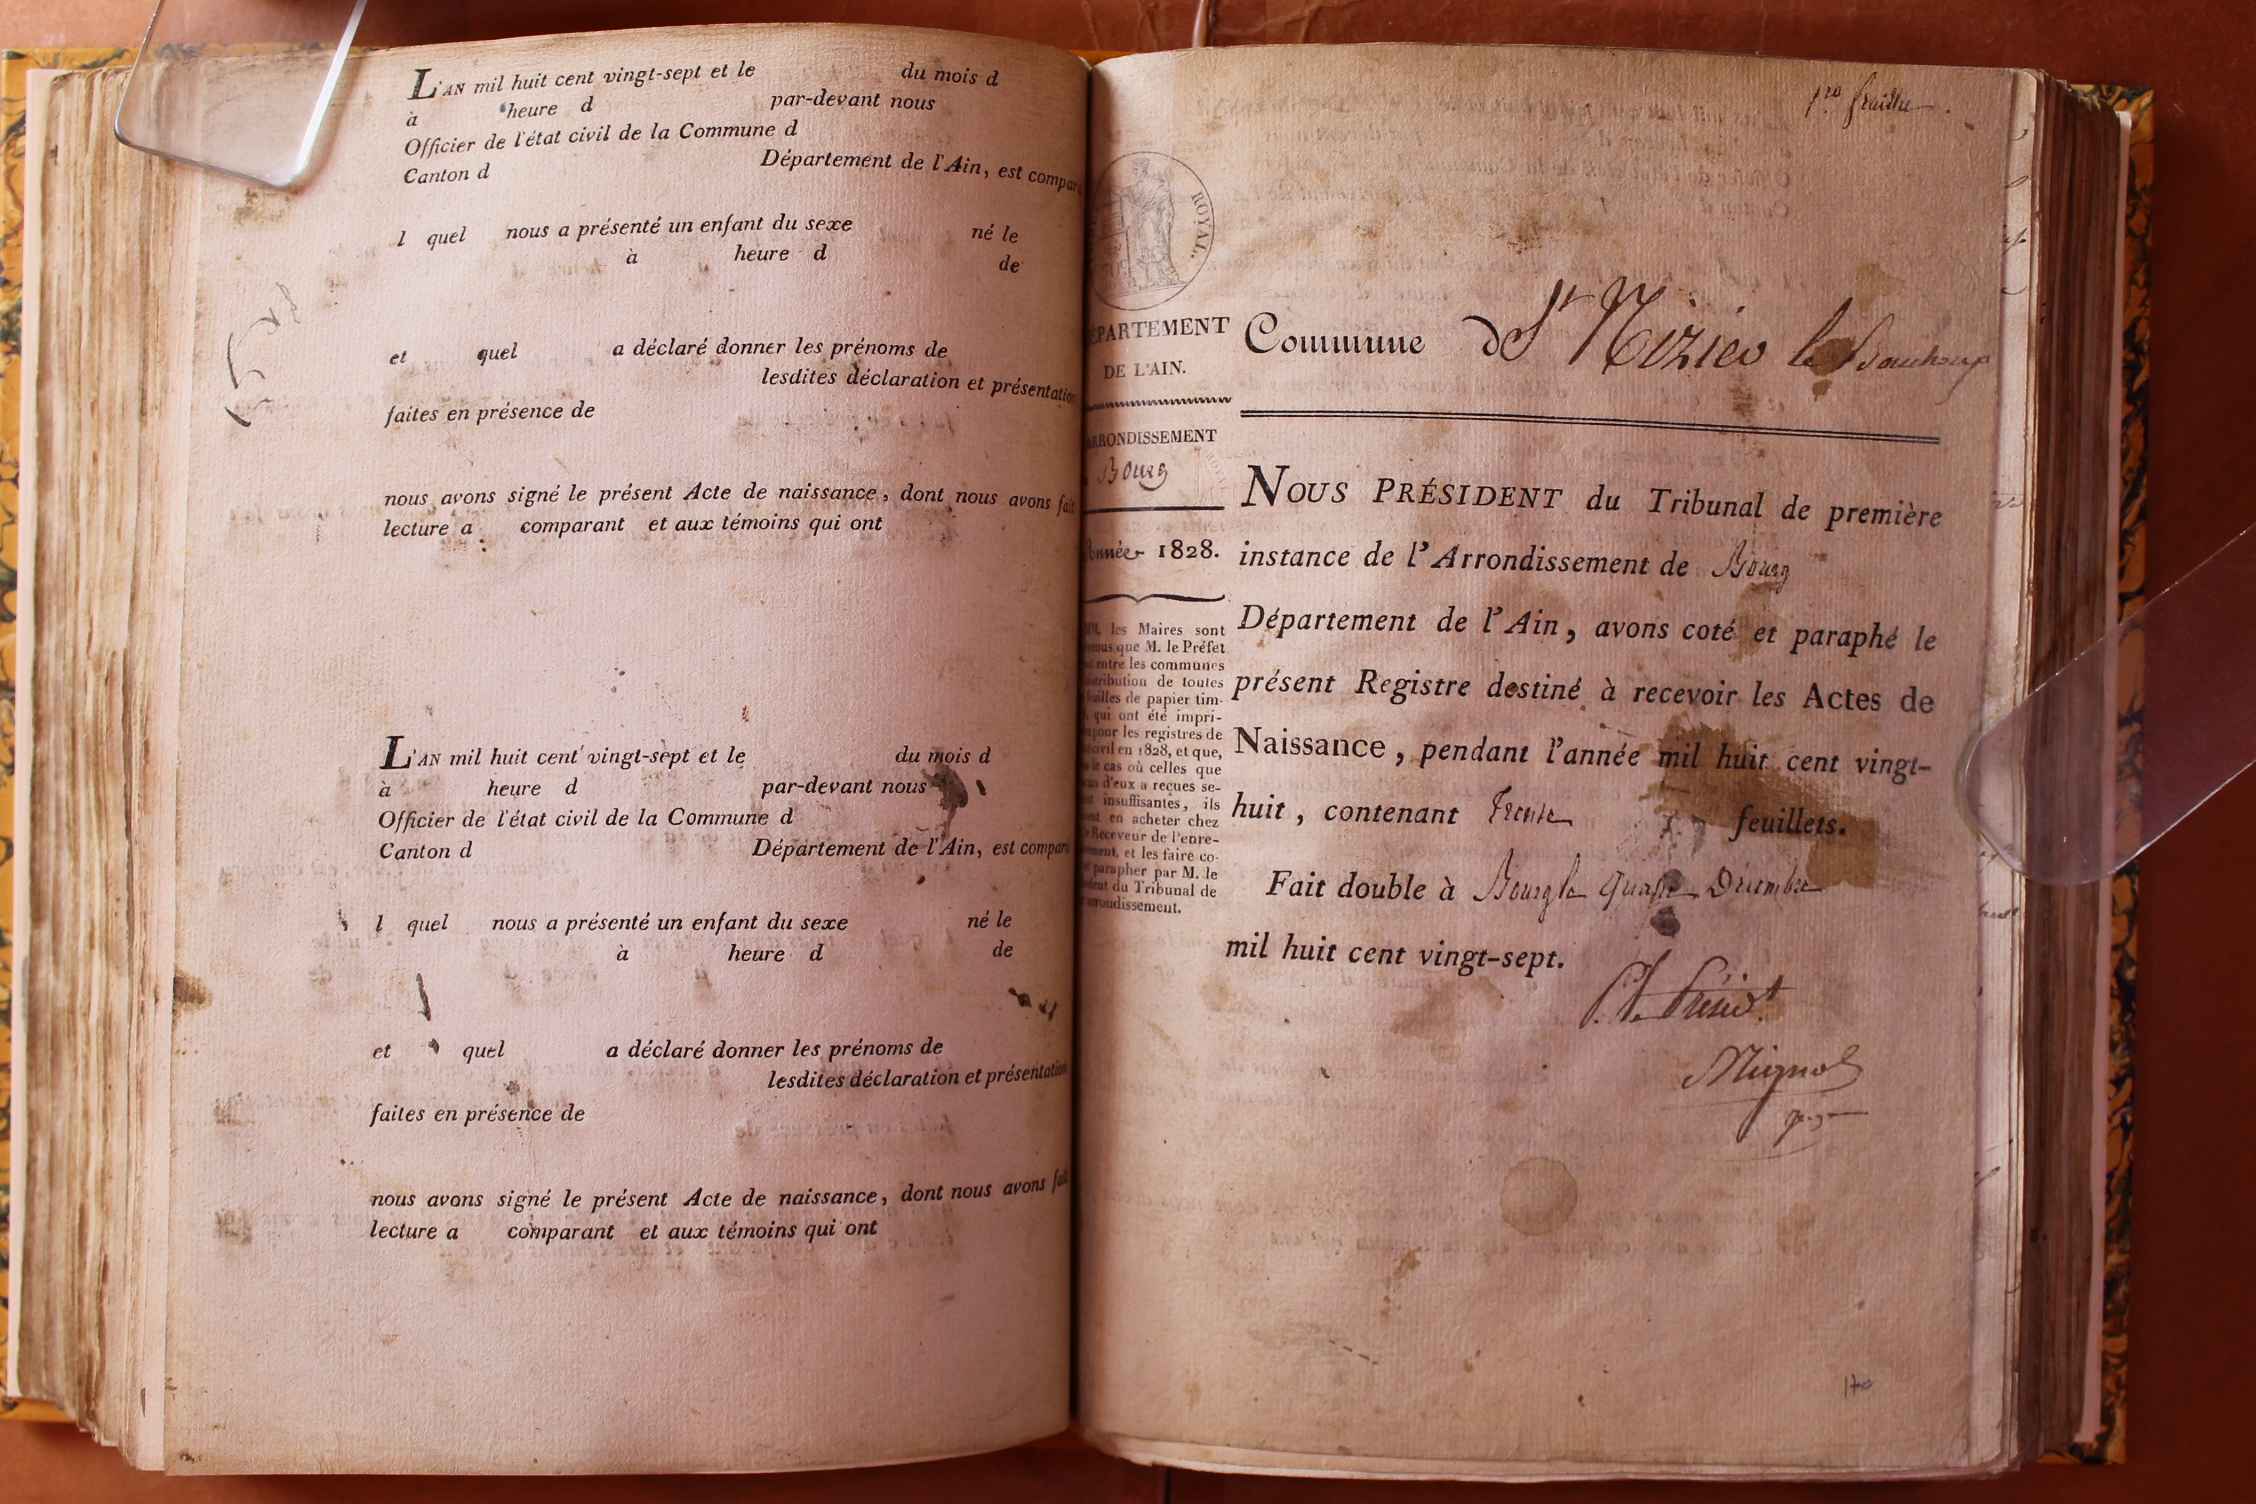 L'AN mil huit cent vingt-sept et le du mois d
à heure d par-devant nous
Officier de l'état civil de la Commune d
Canton d Département de l'Ain, est compar
l quel nous a présenté un enfant du sexe né le
à heure d de
et quel a déclaré donner les prénoms de
lesdites déclaration et présentation
faites en présence de
nous avons signé le présent Acte de naissance, dont nous avons fait
lecture a comparant et aux témoins qui ont
L'AN mil huit cent vingt-sept et le du mois d
à heure d par-devant nous
Officier de l'état civil de la Commune d
Canton d Département de l'Ain, est compar
l quel nous a présenté un enfant du sexe né le
à heure d de
et quel a déclaré donner les prénoms de
lesdites déclaration et présentation
faites en présence de
nous avons signé le présent Acte de naissance, dont nous avons fait
lecture a comparant et aux témoins qui ont
ROYAL.
DÉPARTEMENT
DE L'AIN.
ARRONDISSEMENT
Bourg
Année 1828.
MM. les Maires sont
que M. le Préfet
entre les communes
distribution de toutes
feuilles de papier tim-
qui ont été impri-
pour les registres de
civil en 1828, et que,
le cas où celles que
d'eux a reçues se-
insuffisantes, ils
en acheter chez
Receveur de l'enre-
et les faire co-
parapher par M. le
du Tribunal de
arrondissement.
1ro feuillet
Commune d St Nizier le Bouchoux
NOUS PRÉSIDENT du Tribunal de première
instance de l'Arrondissement de Bourg
Département de l'Ain, avons coté et paraphé le
présent Registre destiné à recevoir les Actes de
Naissance, pendant l'année mil huit cent vingt-
huit, contenant Trente feuillets.
Fait double à Bourg le quatre Décembre
mil huit cent vingt-sept.
P. le Présidt
170